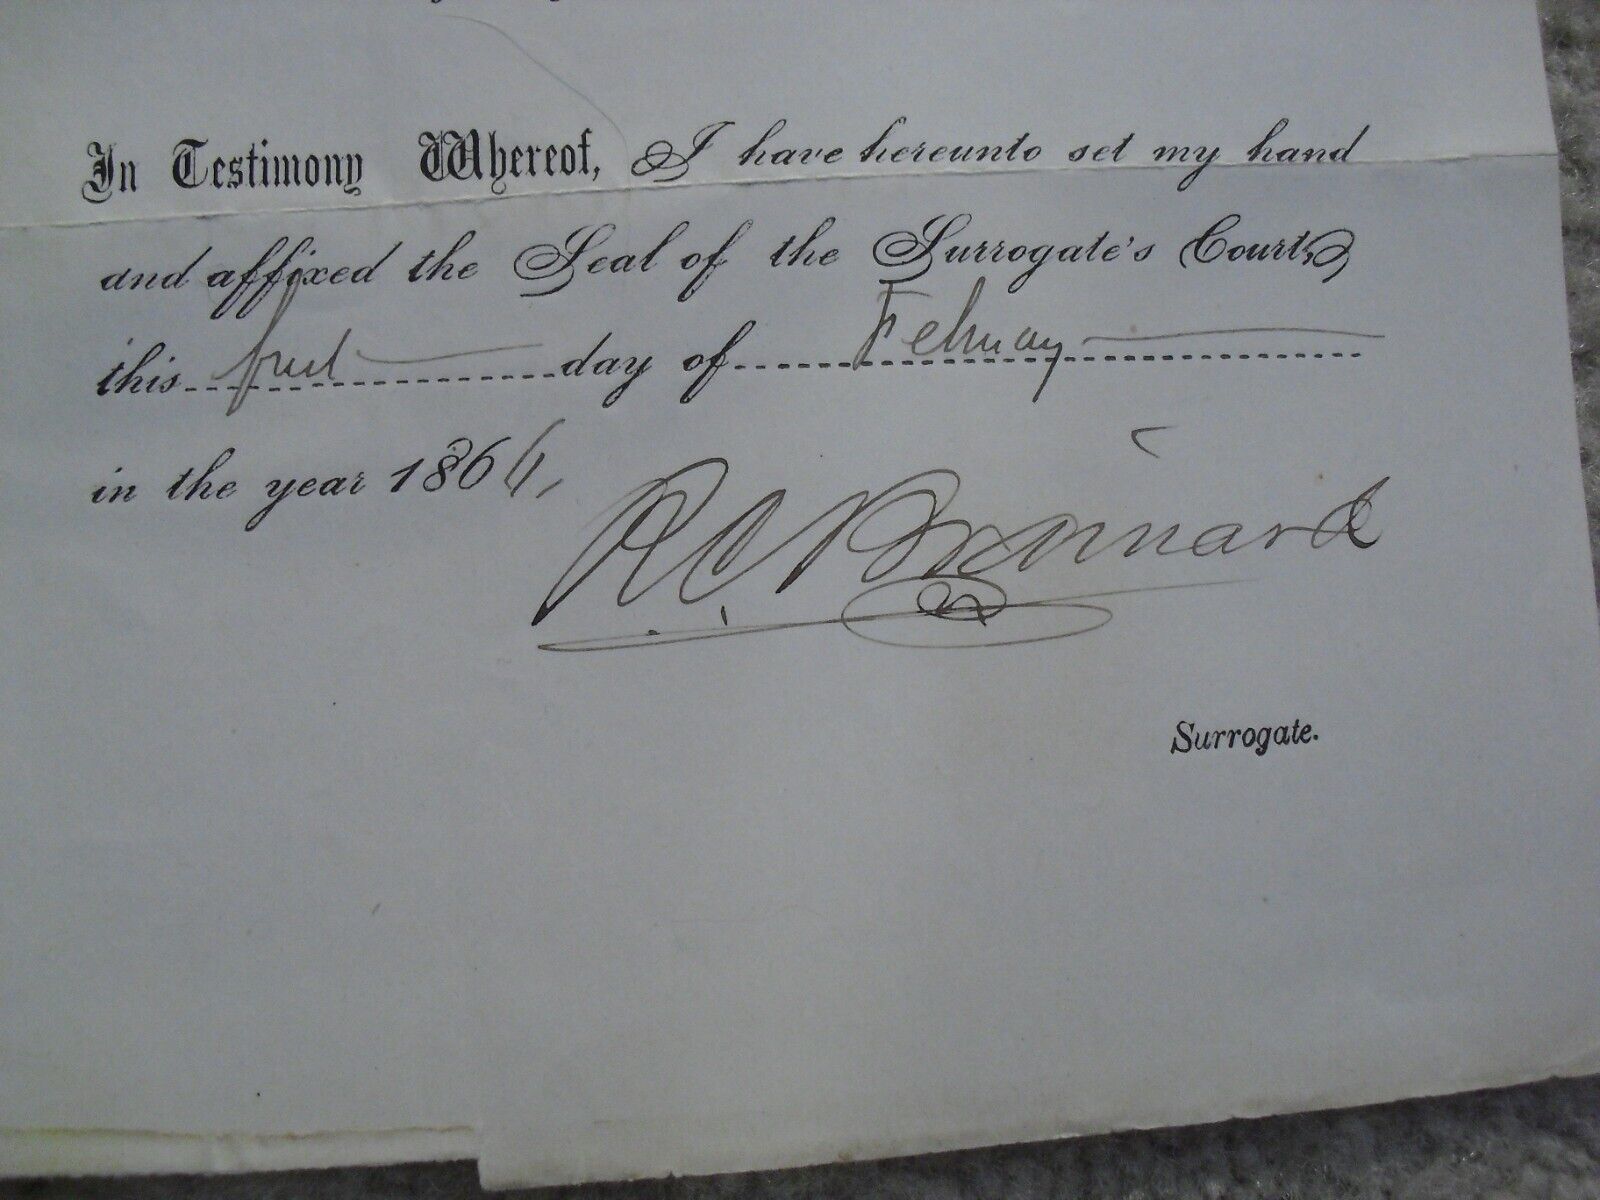 In Testimony Whereof, I have hereunto set my hand
and affixed the Seal of the Surrogate's Court,
this first day of February
in the year 1864,
R. C. Brainard
Surrogate.